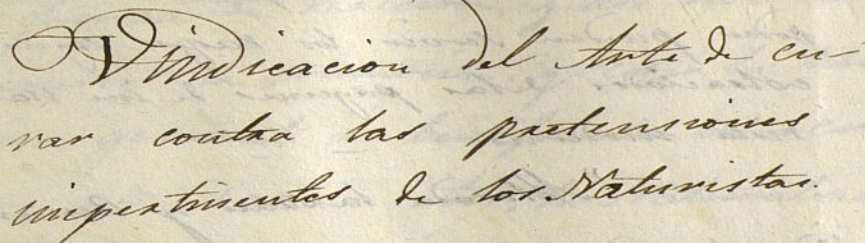 Vindicacion del Arte de cu-
rar contra las pretensiones
impertinentes de los Naturistas.